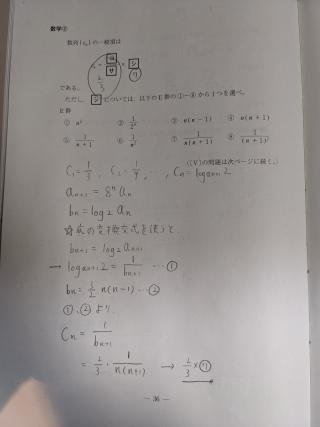 数学②
数列{cₙ}の一般項は
cₙ = サ/シ × ジ
2/3 ⑦
である。
ただし、ジ については、以下のE群の①~⑧から1つを選べ。
E群
① n² ② 1/2ⁿ ③ n(n−1) ④ n(n+1)
⑤ 1/(n+1) ⑥ 1/n² ⑦ 1/(n(n+1)) ⑧ 1/(n+1)²
((V)の問題は次ページに続く。)
C₁ = 1/3, C₂ = 1/9, …, Cₙ = log aₙ₊₁ 2
aₙ₊₁ = 8ⁿ aₙ
bₙ = log₂ aₙ
☆底の変換公式を使うと、
bₙ₊₁ = log₂ aₙ₊₁
→ log aₙ₊₁ 2 = 1/bₙ₊₁ … ①
bₙ = 3/2 n(n−1) … ②
①、②より、
Cₙ = 1/bₙ₊₁
= 2/3 · 1/(n(n+1)) → 2/3 × ⑦
— 36 —